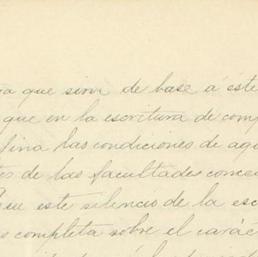 que sirve de base á este
que en la escritura de comp
fina las condiciones de aqu
es de las facultades conce
Que este silencio de la esc
s completa sobre el carác